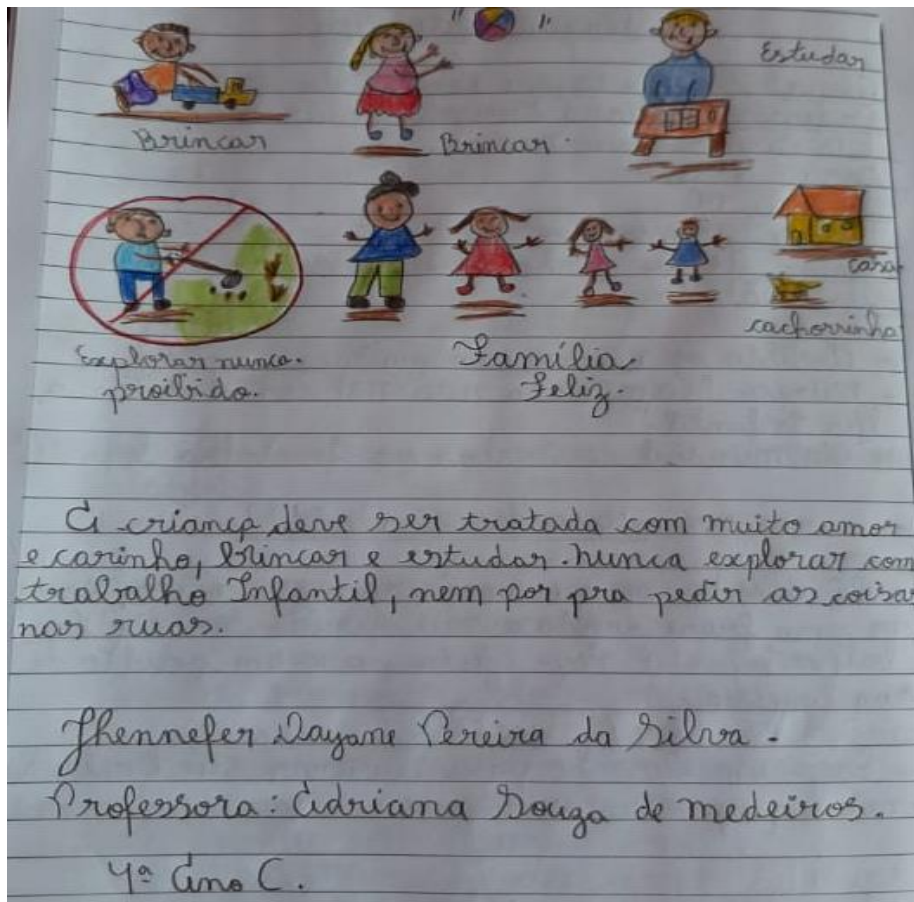 Estudar
Brincar
Brincar.
casa
cachorrinho
Explorar nunca.
proibido.
Família
Feliz.
A criança deve ser tratada com muito amor
e carinho, brincar e estudar. nunca explorar com
trabalho Infantil, nem por pra pedir as coisas
nas ruas.
Jhennefer Dayane Pereira da Silva.
Professora: Adriana Souza de medeiros.
4º Ano C.